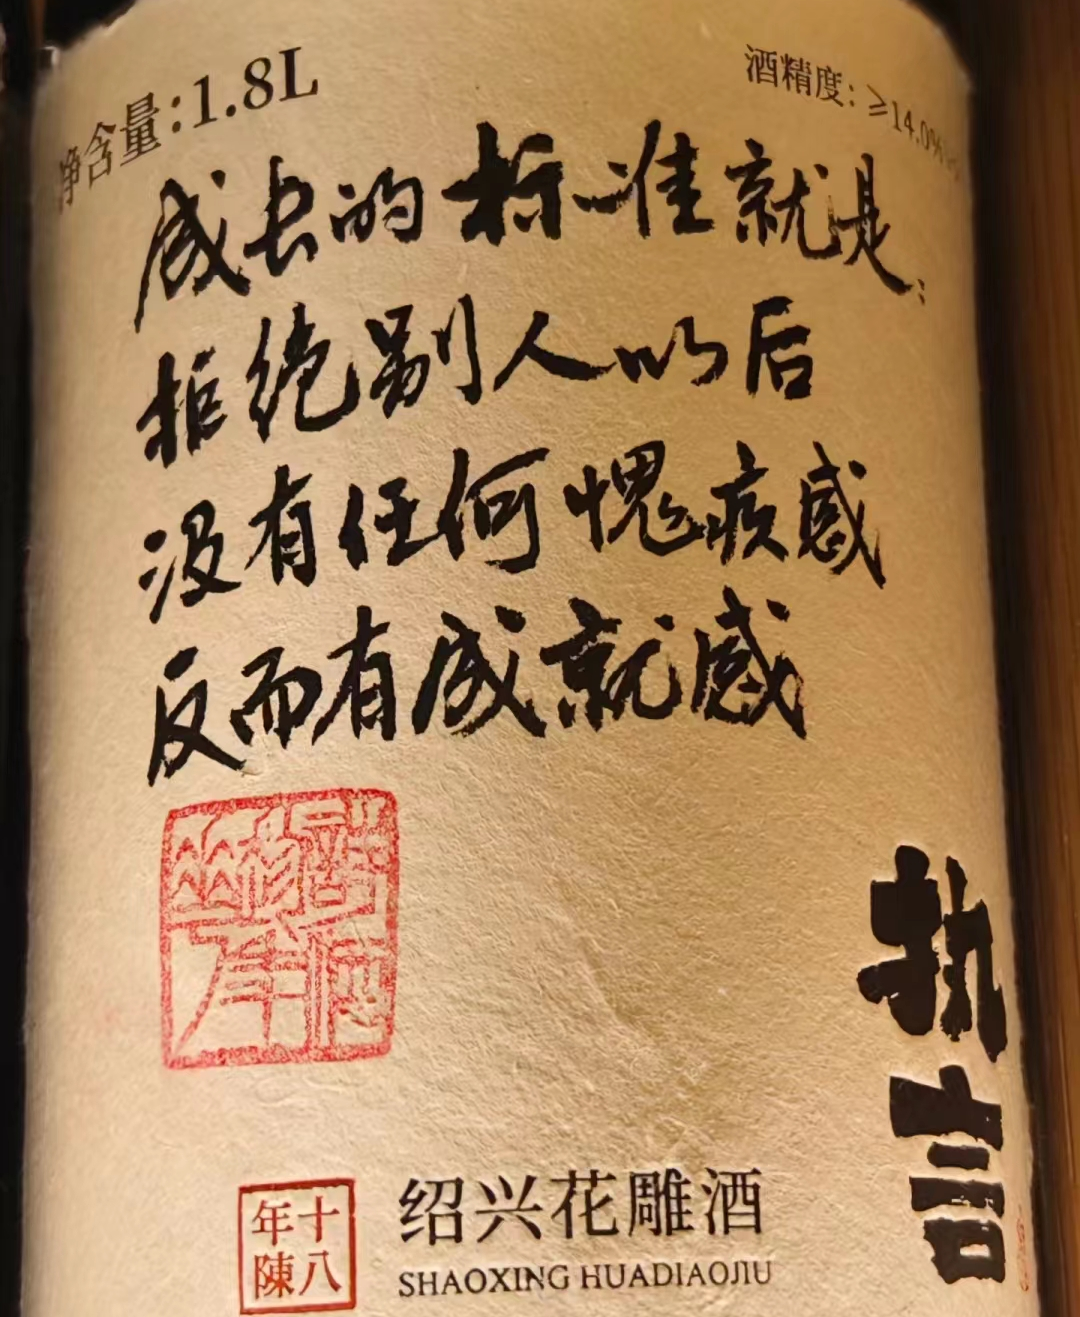 净含量:1.8L
酒精度:≥14.0%
成长的标准就是:
拒绝别人以后
没有任何愧疚感
反而有成就感
执言
十八
年陳
绍兴花雕酒
SHAOXING HUADIAOJIU